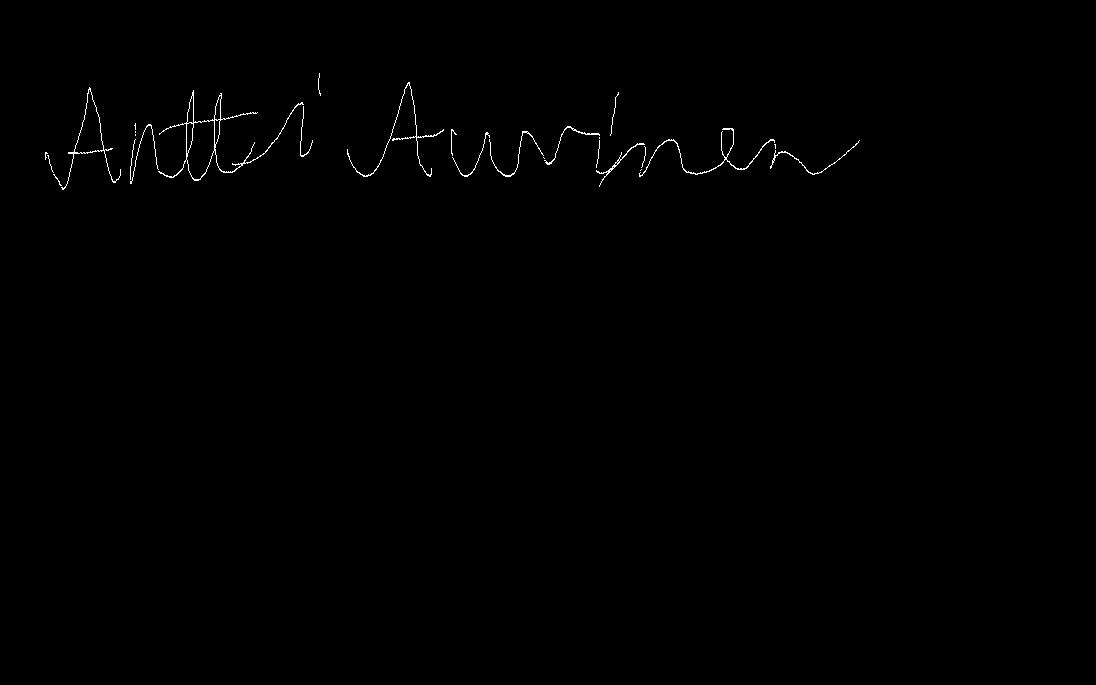 Antti Auvinen